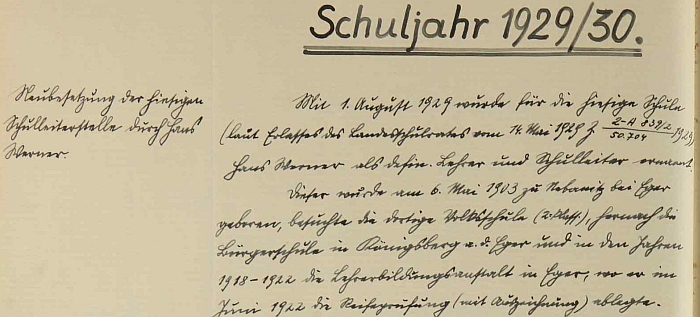 Schuljahr 1929/30.
Neubesetzung der hiesigen
Schulleiterstelle durch Hans
Werner.
Mit 1. August 1929 wurde für die hiesige Schule
(laut Erlasses des Landesschulrates vom 14. Mai 1929 Z 2-A 839/2 / 50.704 1929)
Hans Werner als defin. Lehrer und Schulleiter ernannt.
Dieser wurde am 6. Mai 1903 zu Nebanitz bei Eger
geboren, besuchte die dortige Volksschule (2klass.), hernach die
Bürgerschule in Königsberg a. d. Eger und in den Jahren
1918-1922 die Lehrerbildungsanstalt in Eger, wo er im
Juni 1922 die Reifeprüfung (mit Auszeichnung) ablegte.